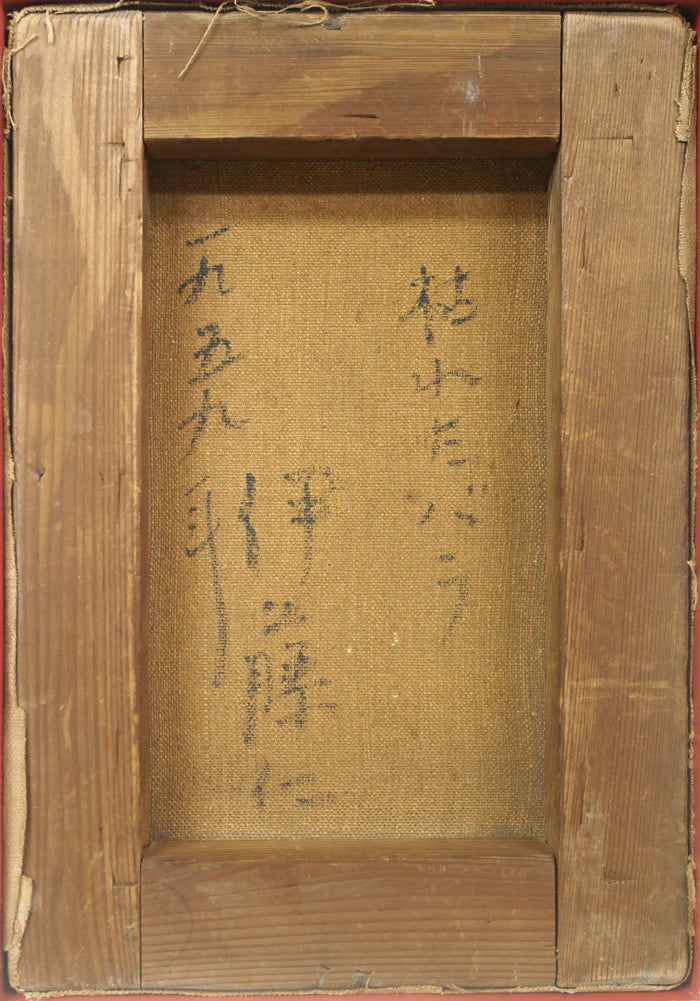 枯れたバラ
伊藤仁
一九五九年